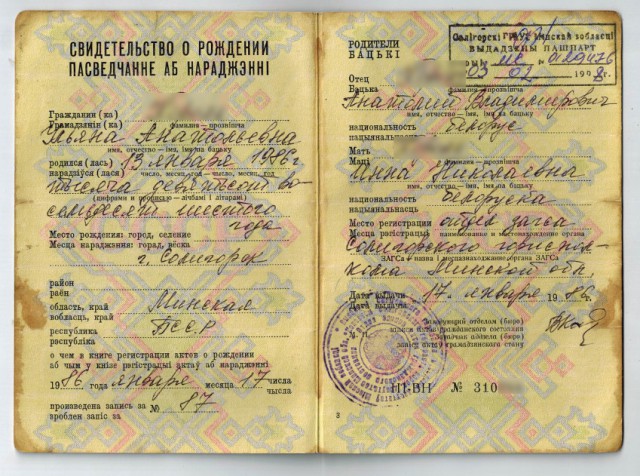 СВИДЕТЕЛЬСТВО О РОЖДЕНИИ
ПАСВЕДЧАННЕ АБ НАРАДЖЭННІ
Гражданин (ка)
Грамадзянін (ка)
фамилия — прозвішча
Ульяна Анатольевна
имя, отчество — імя, імя па бацьку
родился (лась) 13 января 1986 г
нарадзіўся (лася) число, месяц, год — чысло, месяц, год
тысяча девятьсот во
(цифрами и прописью — лічбамі і літарамі)
семьдесят шестого
года
Место рождения: город, селение
Месца нараджэння: горад, вёска
г. Солигорск
район
раён
область, край Минская
вобласць, край
республика БССР
рэспубліка
о чем в книге регистрации актов о рождении
аб чым у кнізе рэгістрацыі актаў аб нараджэнні
1986 года января месяца 17 числа
чысла
произведена запись за № 87
зроблен запіс за
РОДИТЕЛИ
БАЦЬКІ
ВЫДАДЗЕНЫ ПАШПАРТ
03 02 1998г.
Отец
Бацька
фамилия — прозвішча
Анатолий Владимирович
имя, отчество — імя, імя па бацьку
национальность белорус
нацыянальнасць
Мать
Маці
фамилия — прозвішча
Инна Николаевна
имя, отчество — імя, імя па бацьку
национальность белоруска
нацыянальнасць
Место регистрации отдел загса
Месца рэгістрацыі наименование и местонахождение органа
Солигорского гориспол-
ЗАГСа — назва і месцазнаходжанне органа ЗАГСа
кома Минской обл.
Дата выдачи 17. января 1986 г.
Дата выдачы
Заведующий отделом (бюро)
записи актов гражданского состояния
Загадчык аддзела (бюро)
запісу актаў грамадзянскага стану
ІІІ-ВН № 310
3